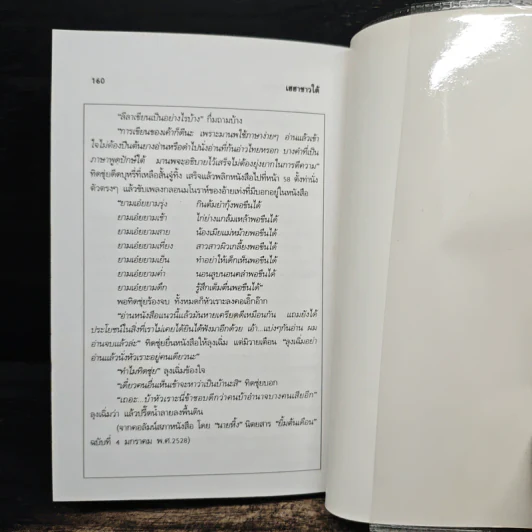 160
เฮฮาชาวใต้
"ลีลาเขียนเป็นอย่างไรบ้าง" กี้มถามบ้าง
"การเขียนของเค้าก็ดีนะ เพราะมานพใช้ภาษาง่ายๆ อ่านแล้วเข้า
ใจไม่ต้องปีนต้นยางอ่านหรือดำไปนั่งอ่านที่ก้นอ่าวไทยหรอก บางคำที่เป็น
ภาษาพูดปักษ์ใต้ มานพจะอธิบายไว้เสร็จไม่ต้องยุ่งยากในการตีความ"
ทิดชุ่ยดีดบุหรี่ที่เหลือสั้นจู๋ทิ้ง เสร็จแล้วพลิกหนังสือไปที่หน้า 58 ตั้งท่านั่ง
ตัวตรงๆ แล้วขับเพลงกลอนมโนราห์ของอ้ายเท่งที่มีบอกอยู่ในหนังสือ
"ยามเอ๋ยยามรุ่ง กินต้มยำกุ้งพอขืนได้
ยามเอ๋ยยามเช้า ไก่ย่างแกล้มเหล้าพอขืนได้
ยามเอ๋ยยามสาย น้องเมียแม่หม้ายพอขืนได้
ยามเอ๋ยยามเที่ยง สาวสาวผิวเกลี้ยงพอขืนได้
ยามเอ๋ยยามเย็น ทำอย่าให้เด็กเห็นพอขืนได้
ยามเอ๋ยยามค่ำ นอนลูบนอนคลำพอขืนได้
ยามเอ๋ยยามดึก รู้สึกเต้มตื่นพอขืนได้"
พอทิดชุ่ยร้องจบ ทั้งหมดก็หัวเราะลงคอเอิ๊กอ๊าก
"อ่านหนังสือแนวนี้แล้วมันหายเครียดดีเหมือนกัน แถมยังได้
ประโยชน์ในสิ่งที่เราไม่เคยได้ยินได้ฟังมาอีกด้วย เอ้า...แบ่งๆกันอ่าน ผม
อ่านจบแล้วล่ะ" ทิดชุ่ยยื่นหนังสือให้ลุงเฉิ่ม แต่มิวายเตือน "ลุงเฉิ่มอย่า
อ่านแล้วนั่งหัวเราะอยู่คนเดียวนะ"
"ทำไมทิดชุ่ย" ลุงเฉิ่มข้องใจ
"เดี๋ยวคนอื่นเห็นเข้าจะหาว่าเป็นบ้านะสิ" ทิดชุ่ยบอก
"เถอะ...บ้าหัวเราะนี่ข้าชอบดีกว่าคนบ้าอำนาจบางคนเสียอีก"
ลุงเฉิ่มว่า แล้วปรี๊ดน้ำลายลงพื้นดิน
(จากคอลัมน์สภาหนังสือ โดย "นายทิ้ง" นิตยสาร "ยิ้มต้นเดือน"
ฉบับที่ 4 มกราคม พ.ศ.2528)